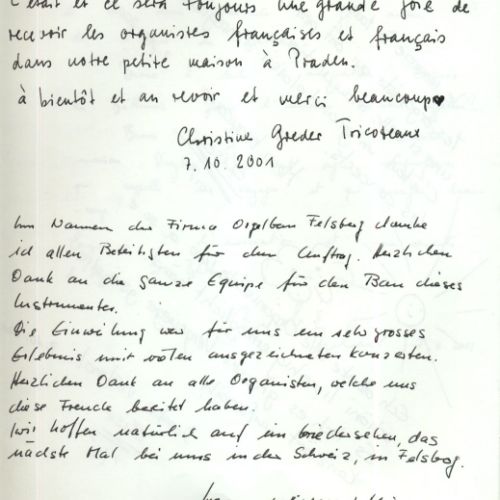 C'était et ce sera toujours une grande joie de
recevoir les organistes françaises et français
dans notre petite maison à Praden.
à bientôt et au revoir et merci beaucoup♥
Christine Greder Tricoteaux
7.10.2001
Im Namen der Firma Orgelbau Felsberg danke
ich allen Beteiligten für den Auftrag. Herzlichen
Dank an die ganze Equipe für den Bau dieses
Instrumentes.
Die Einweihung war für uns ein sehr grosses
Erlebnis mit vielen ausgezeichneten Konzerten.
Herzlichen Dank an alle Organisten, welche uns
diese Freude bereitet haben.
Wir hoffen natürlich auf ein Wiedersehen, das
nächste Mal bei uns in der Schweiz, in Felsberg.